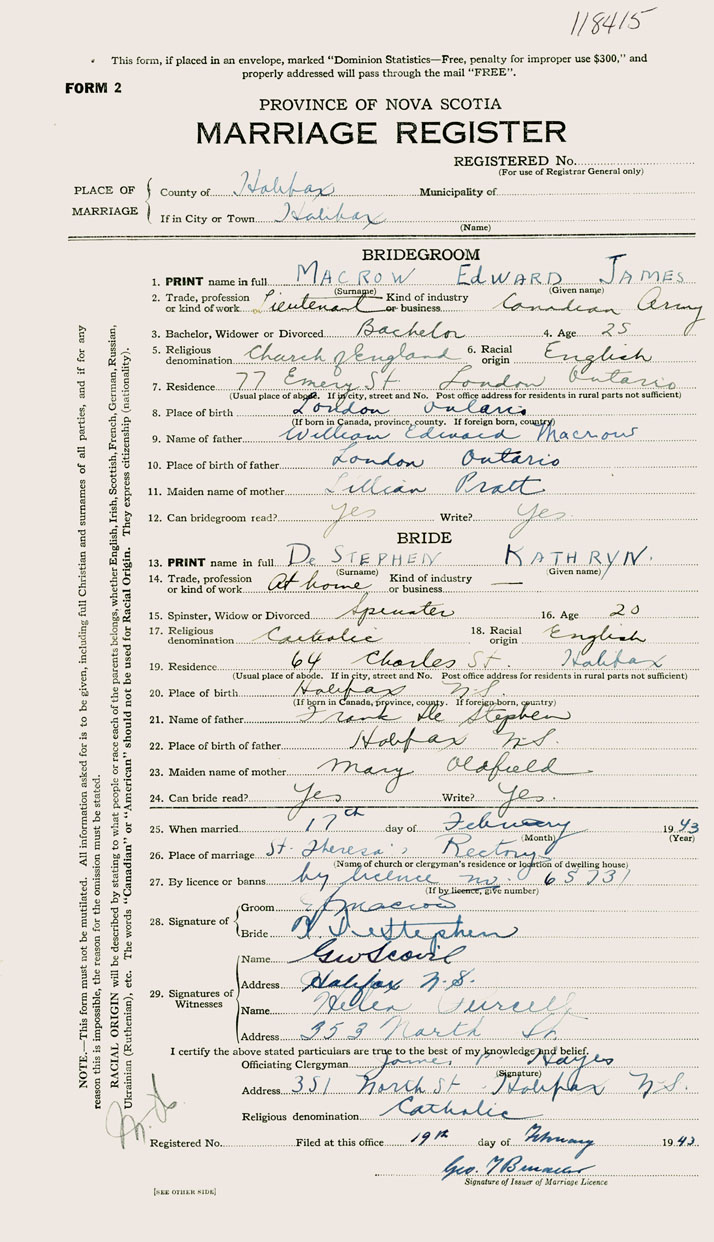 118415
This form, if placed in an envelope, marked "Dominion Statistics—Free, penalty for improper use $300," and
properly addressed will pass through the mail "FREE".
FORM 2
PROVINCE OF NOVA SCOTIA
MARRIAGE REGISTER
REGISTERED No.
(For use of Registrar General only)
PLACE OF MARRIAGE
County of Halifax Municipality of
If in City or Town Halifax
(Name)
BRIDEGROOM
1. PRINT name in full MACROW EDWARD JAMES
(Surname) (Given name)
2. Trade, profession or kind of work Lieutenant Kind of industry or business Canadian Army
3. Bachelor, Widower or Divorced Bachelor 4. Age 25
5. Religious denomination Church of England 6. Racial origin English
7. Residence 77 Emery St London Ontario
(Usual place of abode. If in city, street and No. Post office address for residents in rural parts not sufficient)
8. Place of birth London Ontario
(If born in Canada, province, county. If foreign born, country)
9. Name of father William Edward Macrow
10. Place of birth of father London Ontario
11. Maiden name of mother Lillian Pratt
12. Can bridegroom read? Yes Write? Yes.
BRIDE
13. PRINT name in full De STEPHEN KATHRYN.
(Surname) (Given name)
14. Trade, profession or kind of work At home Kind of industry or business —
15. Spinster, Widow or Divorced Spinster 16. Age 20
17. Religious denomination Catholic 18. Racial origin English
19. Residence 64 Charles St. Halifax
(Usual place of abode. If in city, street and No. Post office address for residents in rural parts not sufficient)
20. Place of birth Halifax N.S.
(If born in Canada, province, county. If foreign born, country)
21. Name of father Frank De Stephen
22. Place of birth of father Halifax N.S.
23. Maiden name of mother Mary Oldfield
24. Can bride read? Yes Write? Yes.
25. When married 17th day of February 1943
(Month) (Year)
26. Place of marriage St. Theresa's Rectory
(Name of church or clergyman's residence or location of dwelling house)
27. By licence or banns by licence no. 65731
(If by licence, give number)
28. Signature of
Groom E J Macrow
Bride K DeStephen
29. Signatures of Witnesses
Name GW Scovil
Address Halifax N.S.
Name Helen Purcell
Address 353 North St.
I certify the above stated particulars are true to the best of my knowledge and belief.
Officiating Clergyman James P. Hayes
(Signature)
Address 351 North St. Halifax N.S.
Religious denomination Catholic
Registered No. Filed at this office 19th day of February 1943
Geo.
Signature of Issuer of Marriage Licence
[SEE OTHER SIDE]
NOTE.—This form must not be mutilated. All information asked for is to be given, including full Christian and surnames of all parties, and if for any
reason this is impossible, the reason for the omission must be stated.
RACIAL ORIGIN will be described by stating to what people or race each of the parents belongs, whether English, Irish, Scottish, French, German, Russian,
Ukrainian (Ruthenian), etc. The words "Canadian" or "American" should not be used for Racial Origin. They express citizenship (nationality).